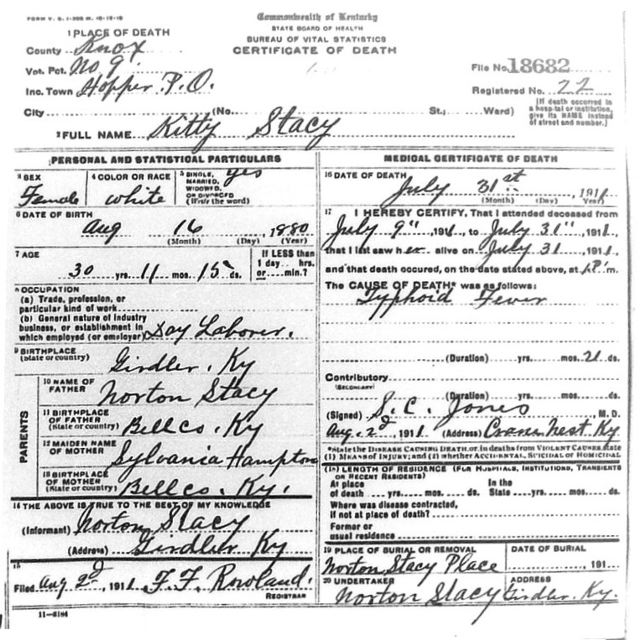 FORM V. S. 1-
Commonwealth of Kentucky
STATE BOARD OF HEALTH
BUREAU OF VITAL STATISTICS
CERTIFICATE OF DEATH
1 PLACE OF DEATH
County Knox
Vot. Pct. No 9.
Inc. Town Hopper P.O.
File No. 18682
Registered No. 22
City (No. St.; Ward)
(If death occurred in a hospital or institution, give its NAME instead of street and number.)
2 FULL NAME Kitty Stacy
PERSONAL AND STATISTICAL PARTICULARS
3 SEX Female
4 COLOR OR RACE white
5 SINGLE, MARRIED, WIDOWED, OR DIVORCED (Write the word) yes
6 DATE OF BIRTH
Aug 16 1880
(Month) (Day) (Year)
7 AGE
30 yrs. 11 mos. 15 ds.
If LESS than 1 day hrs. or min.?
8 OCCUPATION
(a) Trade, profession, or particular kind of work
(b) General nature of industry business, or establishment in which employed (or employer) Day Laborer.
9 BIRTHPLACE
(State or country) Girdler. Ky
PARENTS
10 NAME OF FATHER Norton Stacy
11 BIRTHPLACE OF FATHER (State or country) Bell co. Ky
12 MAIDEN NAME OF MOTHER Sylvania Hampton
13 BIRTHPLACE OF MOTHER (State or country) Bell co. Ky.
14 THE ABOVE IS TRUE TO THE BEST OF MY KNOWLEDGE
(Informant) Norton Stacy
(Address) Girdler Ky
15
Filed Aug 2d, 1911 F. F. Rowland.
REGISTRAR
11-5184
MEDICAL CERTIFICATE OF DEATH
16 DATE OF DEATH
July 31st, 1911
(Month) (Day) (Year)
17 I HEREBY CERTIFY, That I attended deceased from
July 9", 1911, to July 31", 1911,
that I last saw her alive on July 31, 1911,
and that death occured, on the date stated above, at m.
The CAUSE OF DEATH* was as follows:
Typhoid Fever
(Duration) yrs. mos. 21 ds.
Contributory
(SECONDARY)
(Duration) yrs. mos. ds.
(Signed) S. C. Jones M. D.
Aug. 2d, 1911 (Address) Cranes Nest, Ky.
*State the DISEASE CAUSING DEATH, or, in deaths from VIOLENT CAUSES state (1) MEANS OF INJURY; and (2) whether ACCIDENTAL, SUICIDAL or HOMICIDAL
18 LENGTH OF RESIDENCE (FOR HOSPITALS, INSTITUTIONS, TRANSIENTS OR RECENT RESIDENTS)
At place of death yrs. mos. ds. In the State yrs. mos. ds.
Where was disease contracted, if not at place of death?
Former or usual residence
19 PLACE OF BURIAL OR REMOVAL Norton Stacy Place
DATE OF BURIAL , 191
20 UNDERTAKER Norton Stacy
ADDRESS Girdler. Ky.